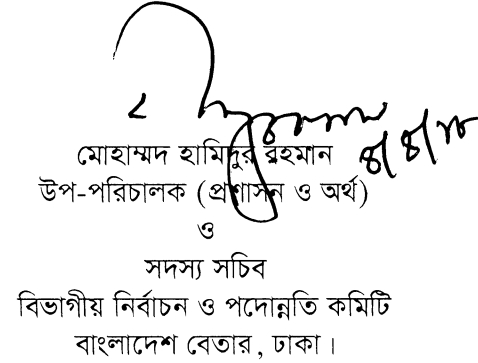 মোহাম্মদ হামিদুর রহমান
উপ-পরিচালক (প্রশাসন ও অর্থ)
ও
সদস্য সচিব
বিভাগীয় নির্বাচন ও পদোন্নতি কমিটি
বাংলাদেশ বেতার, ঢাকা।